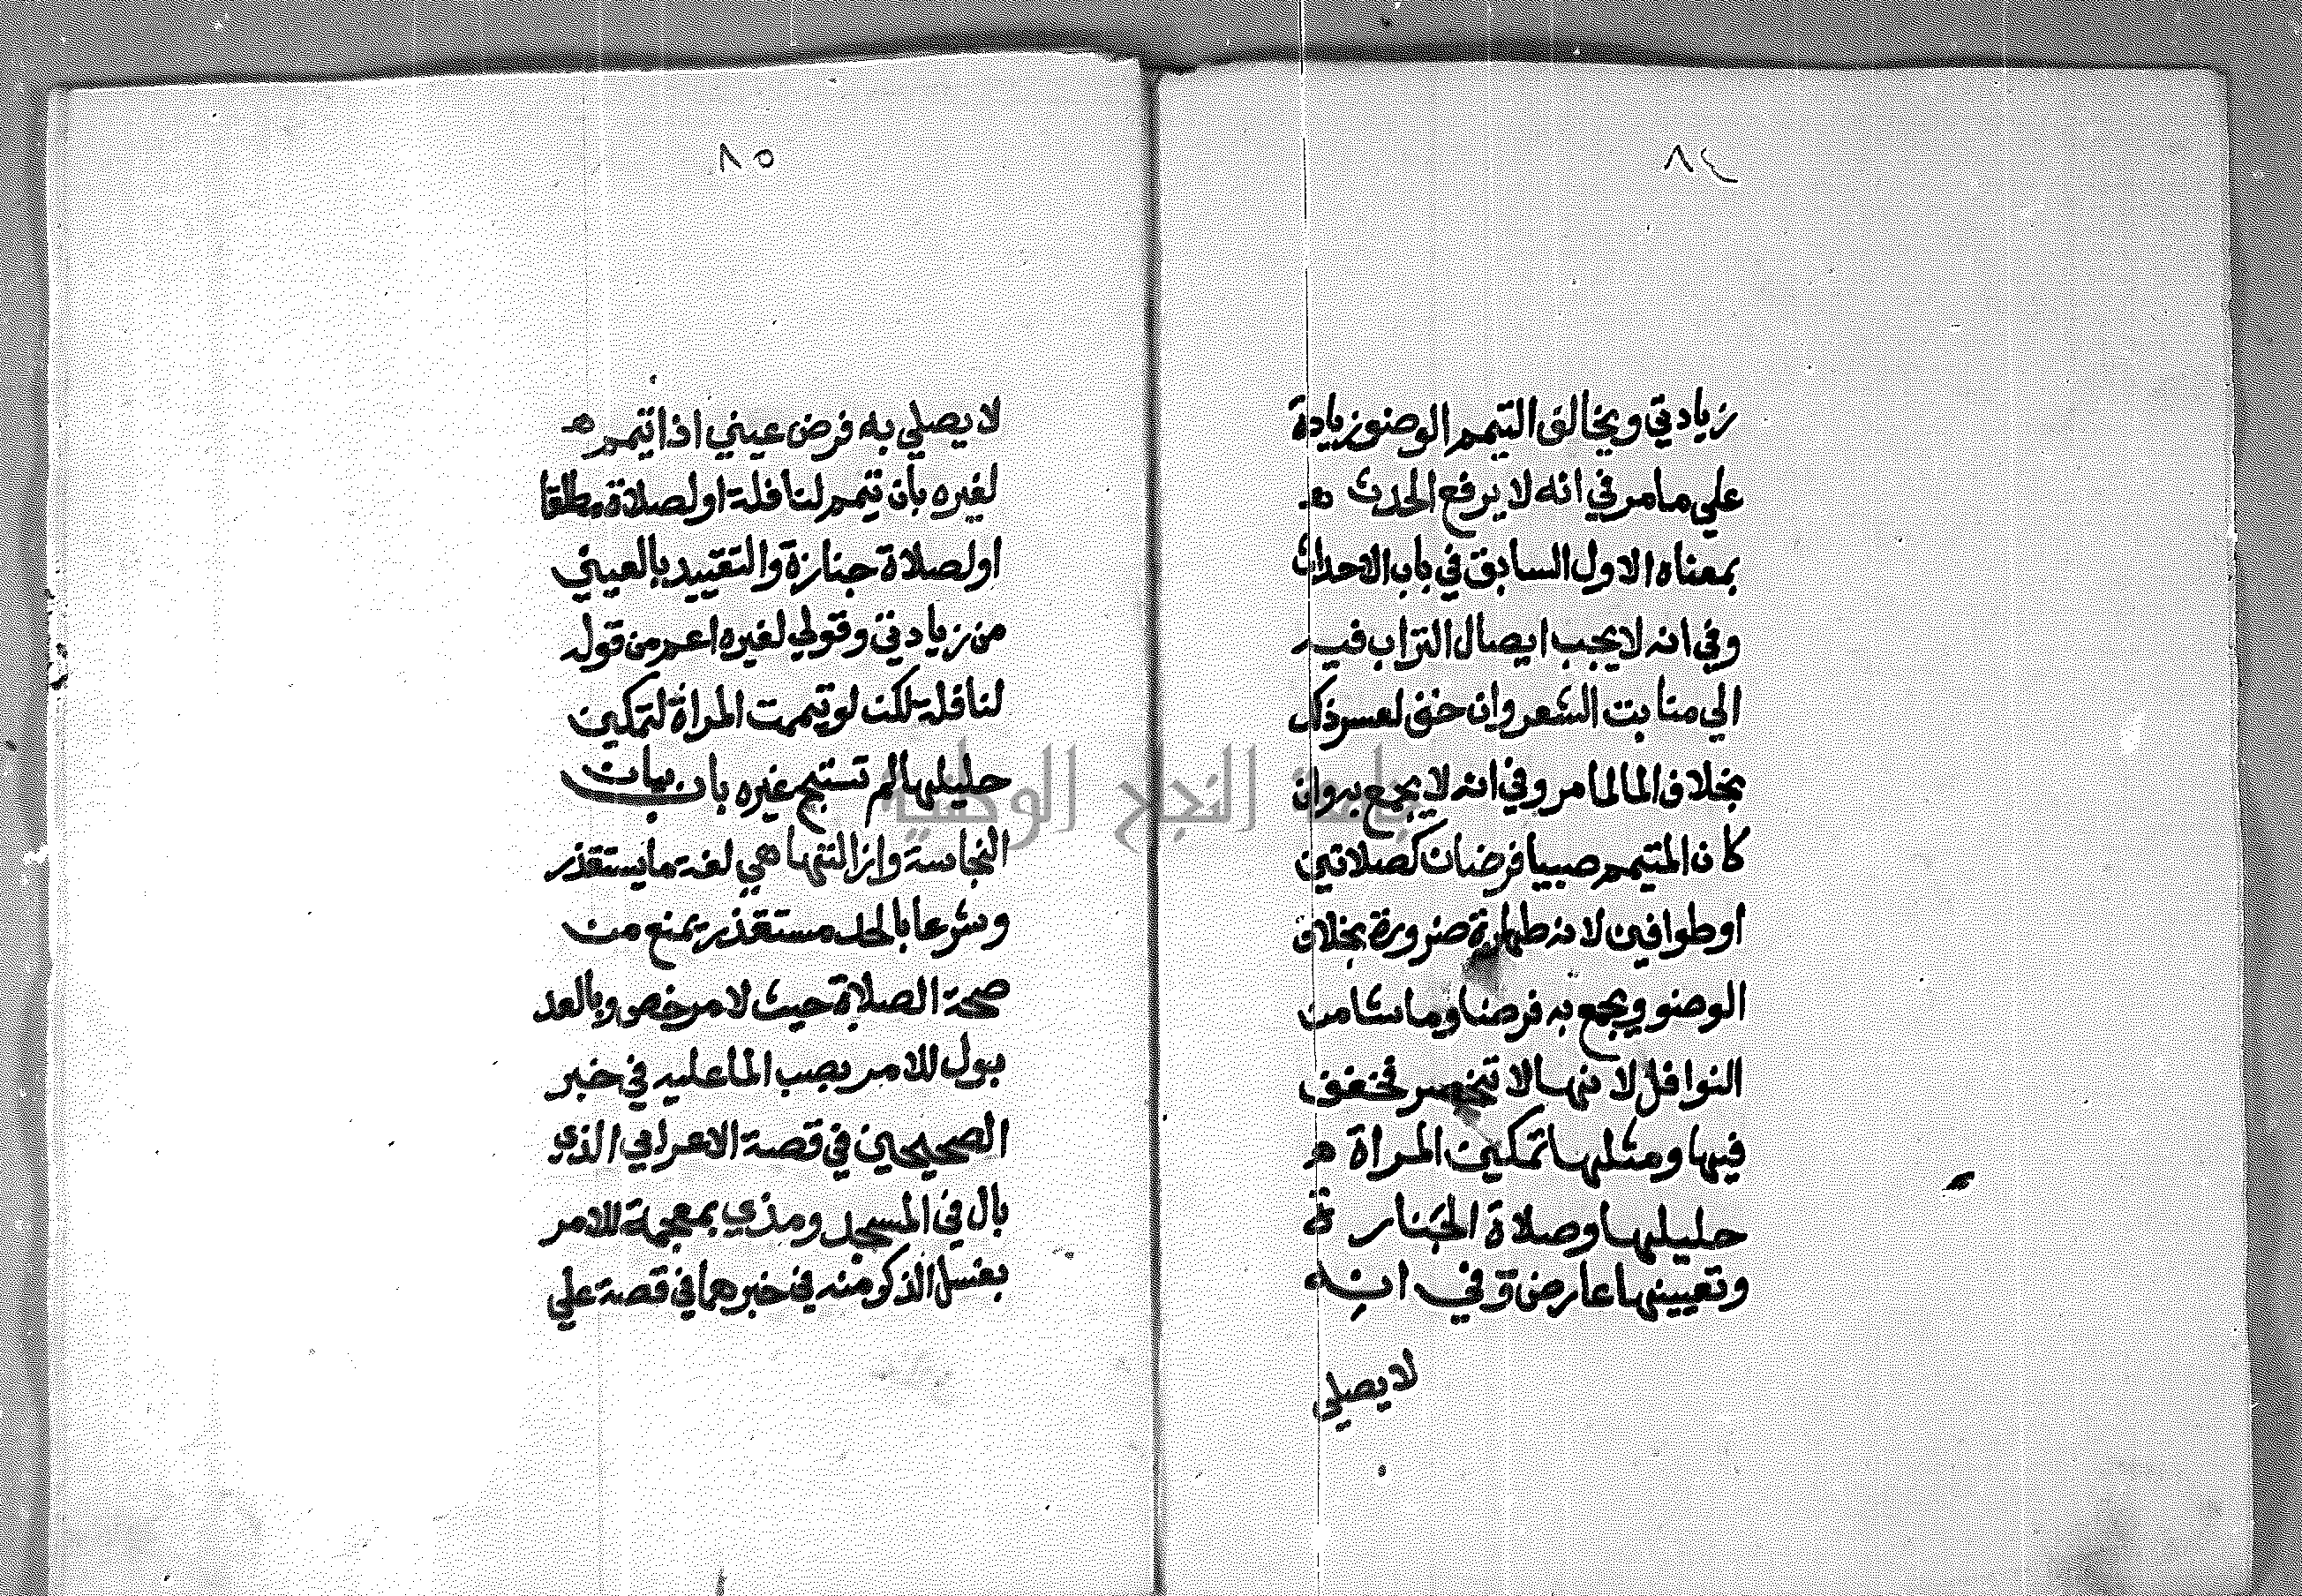 ٨٤
زيادتي ويخالف التيمم الوضو زيادة
علي ما مر في انه لا يرفع الحدث هـ
بمعناه الاول السابق في باب الاحداث
وفي انه لا يجب ايصال التراب فيه
الي منابت الشعر وان خف لعسر ذلك
بخلاف الما لما مر وفي انه لا يجمع به وان
كان المتيمم صبيا فرضان كصلاتين
او طوافين لانه طهارة ضرورة بخلاف
الوضو ويجمع به فرضا وما شا من
النوافل لانها لا تنحصر فخفف
فيها ومثلها تمكين المراة هـ
حليلها وصلاة الجنازة
وتعيينها عارض وفي انه
لا يصلي
٨٥
لا يصلي به فرض عيني اذا تيمم هـ
لغيره بان تيمم لنافلة او لصلاة مطلقا
او لصلاة جنازة والتقييد بالعيني
من زيادتي وقولي لغيره اعم من قوله
لنافلة لكن لو تيممت المراة لتمكين
حليلها لم تستبح غيره باب بيان
النجاسة وازالتها هي لغة ما يستقذر
وشرعا بالحد مستقذر يمنع من
صحة الصلاة حيث لا مرخص وبالعد
بول للامر بصب الما عليه في خبر
الصحيحين في قصة الاعرابي الذي
بال في المسجد ومذي بمعجمة للامر
بغسل الذكر منه في خبرهما في قصة علي
جامعة النجاح الوطنية